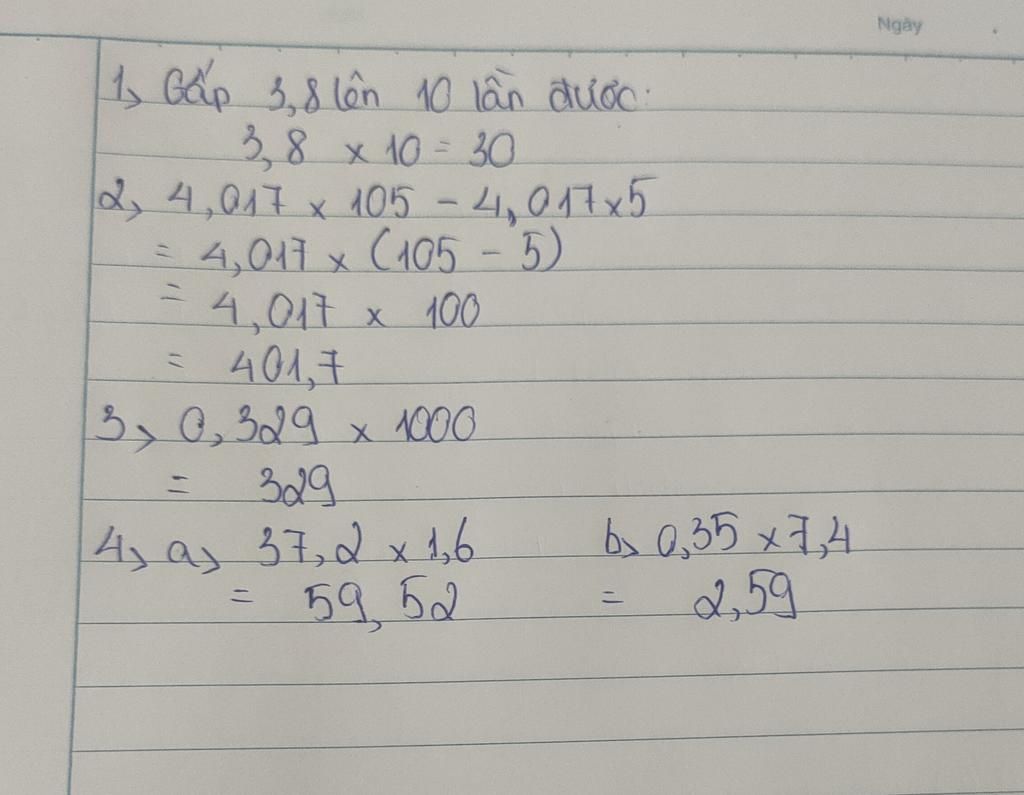 Ngày
1, Gấp 3,8 lên 10 lần được:
3,8 x 10 = 30
2, 4,017 x 105 - 4,017 x 5
= 4,017 x (105 - 5)
= 4,017 x 100
= 401,7
3, 0,329 x 1000
= 329
4, a, 37,2 x 1,6 b, 0,35 x 7,4
= 59,52 = 2,59